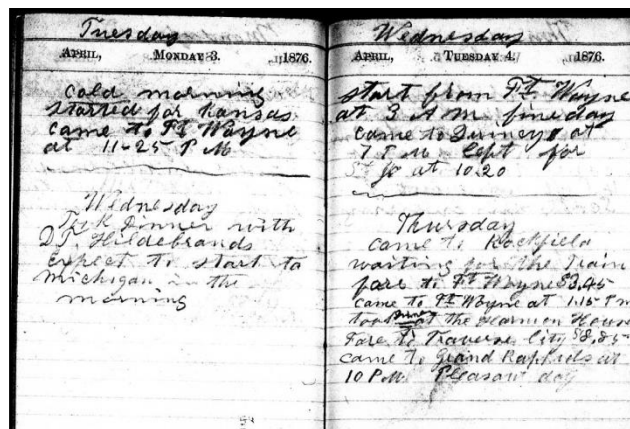 Tuesday
APRIL, MONDAY 3. 1876.
cold morning
started for Kansas
came to Ft Wayne
at 11-25 P M
Wednesday
T K Dinner with
D.T. Hildebrands
expect to start to
Michigan in the
morning
Wednesday
APRIL, TUESDAY 4. 1876.
start from Ft Wayne
at 3 A M fine day
came to Quincy at
7 P M left for
at 10.20
Thursday
came to Rockfield
waiting for the train
fare to Ft Wayne $3.45
came to Ft Wayne at 1.15 P m
took dinner at the Harmon House
Fare to Traverse City $8.85
came to Grand Rappids at
10 P.M. Pleasant day